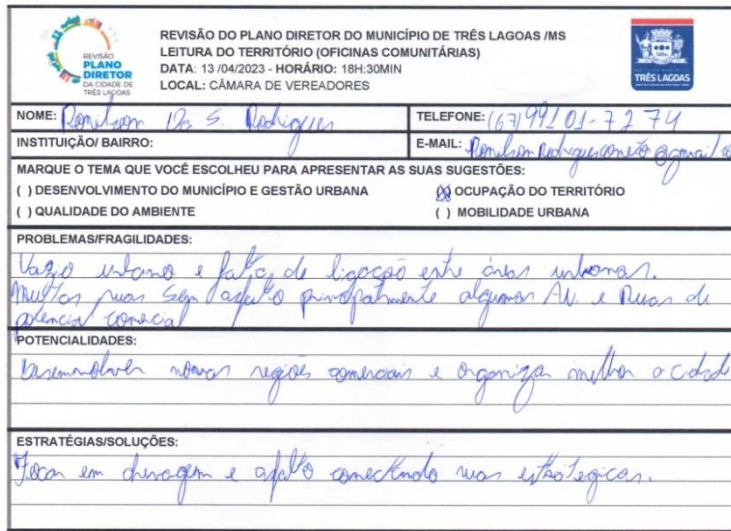 REVISÃO
PLANO
DIRETOR
DA CIDADE DE
TRÊS LAGOAS
REVISÃO DO PLANO DIRETOR DO MUNICÍPIO DE TRÊS LAGOAS /MS
LEITURA DO TERRITÓRIO (OFICINAS COMUNITÁRIAS)
DATA: 13 /04/2023 - HORÁRIO: 18H:30MIN
LOCAL: CÂMARA DE VEREADORES
TRÊS LAGOAS
NOME: Ronelson Da S. Rodrigues
TELEFONE: (67) 99101-7274
INSTITUIÇÃO/ BAIRRO:
E-MAIL:
MARQUE O TEMA QUE VOCÊ ESCOLHEU PARA APRESENTAR AS SUAS SUGESTÕES:
( ) DESENVOLVIMENTO DO MUNICÍPIO E GESTÃO URBANA
(X) OCUPAÇÃO DO TERRITÓRIO
( ) QUALIDADE DO AMBIENTE
( ) MOBILIDADE URBANA
PROBLEMAS/FRAGILIDADES:
Vazio urbano e falta de ligação entre áreas urbanas.
Muitas ruas sem asfalto principalmente algumas AV. e Ruas de
potencial comercial
POTENCIALIDADES:
Desenvolver novas regiões comerciais e organizar melhor a cidade
ESTRATÉGIAS/SOLUÇÕES:
Focar em drenagem e asfalto conectando ruas estrategicas.